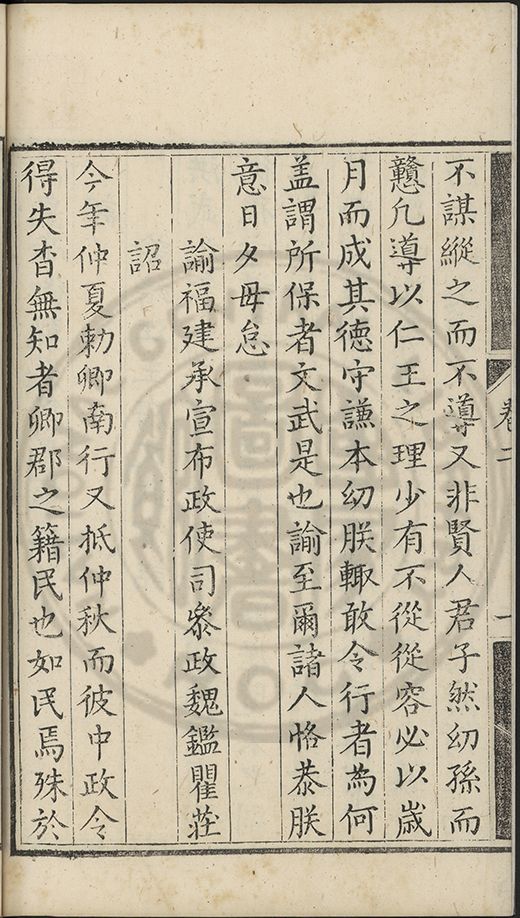 不謀縱之而不導又非賢人君子然幼孫而
戇凡導以仁王之理少有不從從容必以歲
月而成其德守謙本幼朕輙敢令行者為何
盖謂所保者文武是也諭至爾諸人恪恭朕
意日夕毋怠
諭福建承宣布政使司叅政魏鑑瞿莊
詔
今年仲夏勅卿南行又抵仲秋而彼中政令
得失杳無知者卿郡之籍民也如民焉殊於
卷二
一